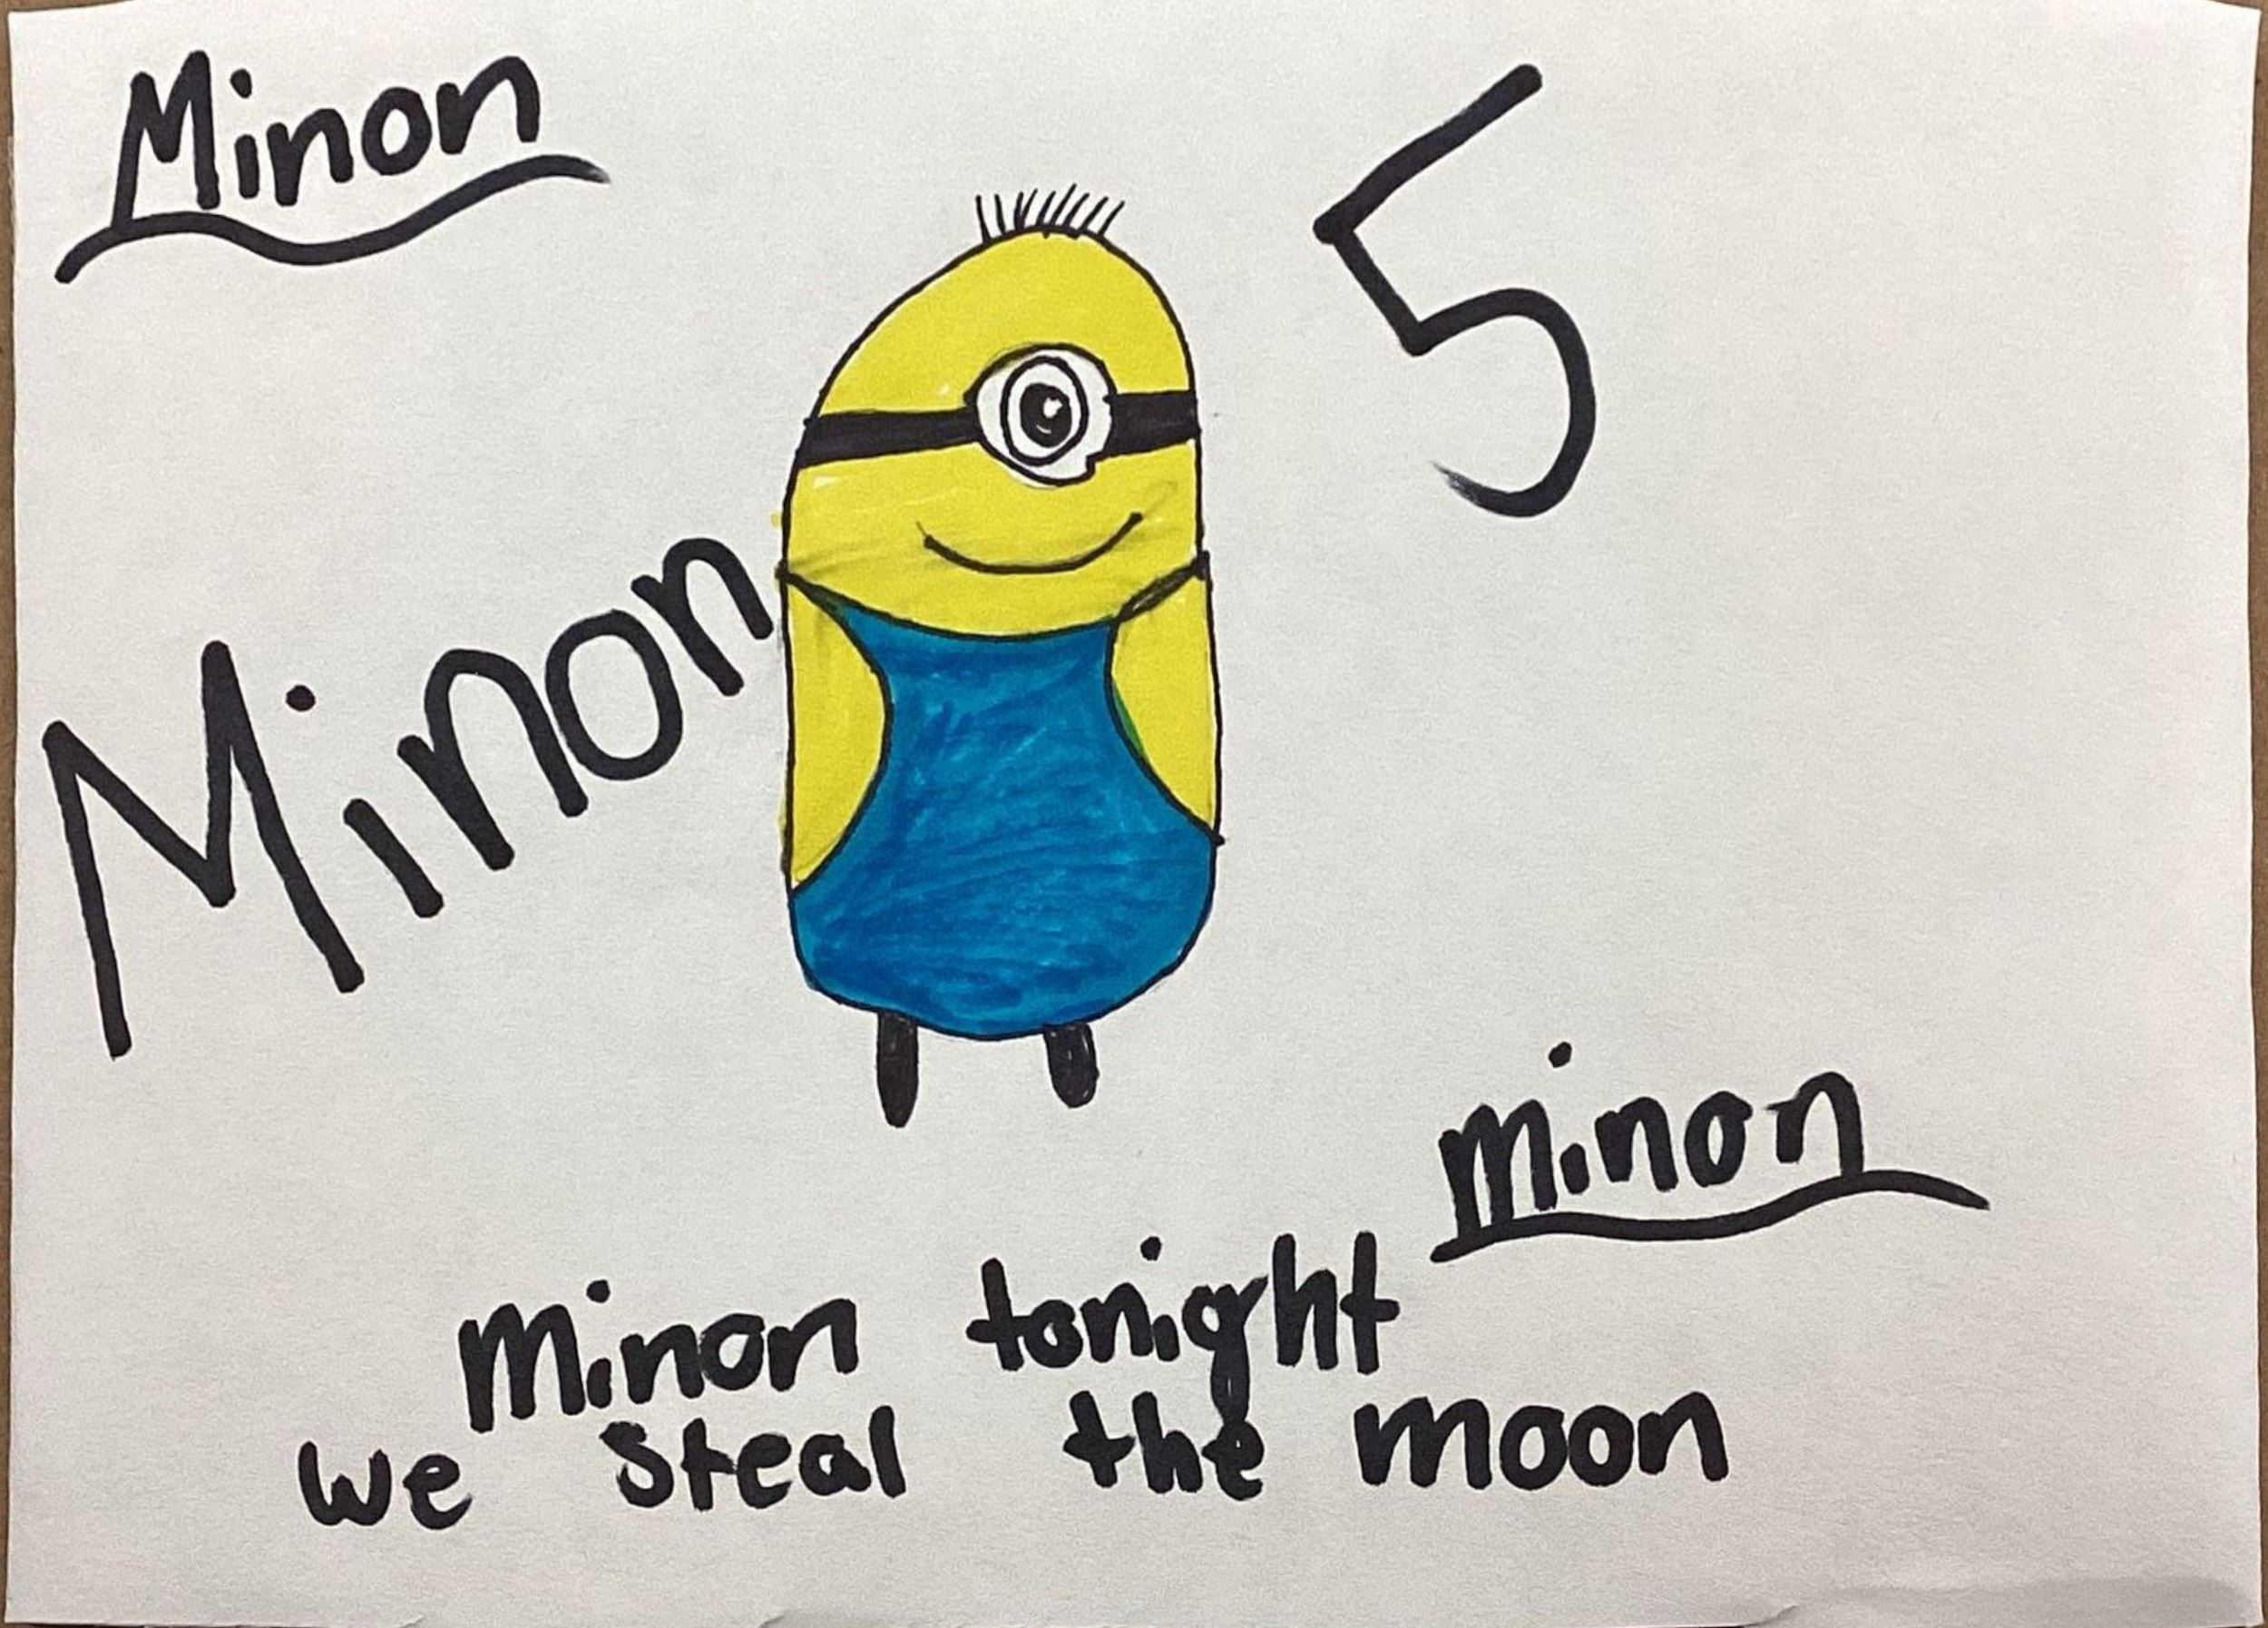 Minon
5
Minon
minon
minon tonight
we steal the moon